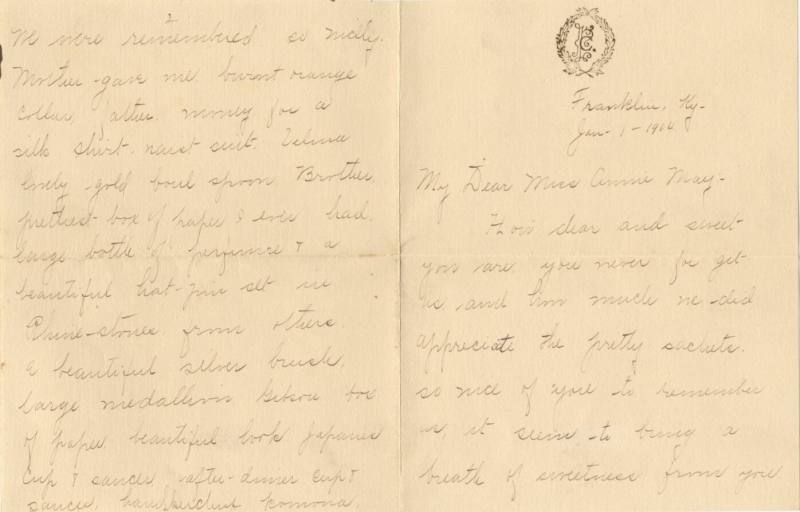 Franklin, Ky-
Jan- 1- 1904
My Dear Miss Annie May-
How dear and sweet
you are, you never for get
us and how much we did
appreciate the pretty sachets.
so nice of you to remember
us, it seems to bring a
breath of sweetness from you
We were remembered so nicely.
Mother gave me burnt orange
collar, father, money for a
silk shirt-waist suit. Velma
lovely gold boul spoon Brother,
prettiest box of paper I ever had.
large bottle of perfume & a
beautiful hat-pin set in
Rhine-stones from others.
a beautiful silver brush,
large medallion Gibson box
of paper beautiful book Japanese
cup & saucer after-dinner cup &
saucer, handkerchief komona,